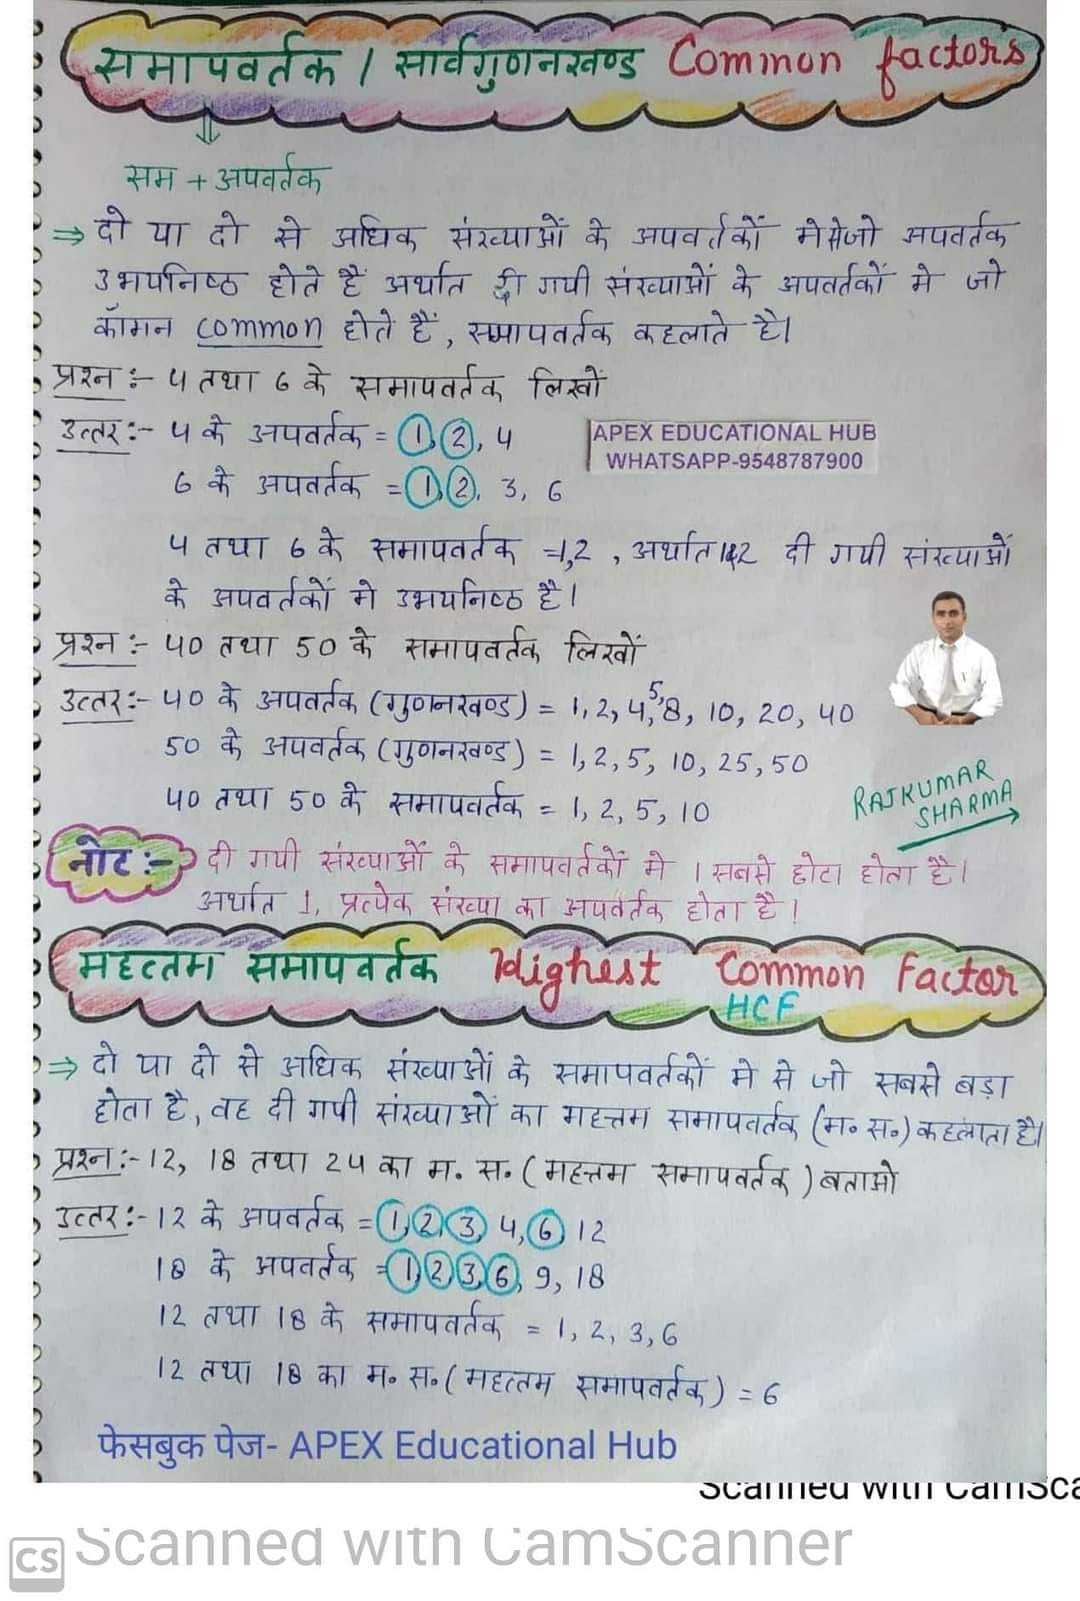 समापवर्तक / सार्वगुणनखण्ड Common factors
सम + अपवर्तक
⇒ दो या दो से अधिक संख्याओं के अपवर्तकों मेसेजो अपवर्तक
उभयनिष्ठ होते हैं अर्थात दी गयी संख्याओं के अपवर्तकों मे जो
कॉमन common होते हैं, समापवर्तक कहलाते है।
प्रश्न :- 4 तथा 6 के समापवर्तक लिखों
उत्तर :- 4 के अपवर्तक = 1, 2, 4
APEX EDUCATIONAL HUB
WHATSAPP-9548787900
6 के अपवर्तक = 1, 2, 3, 6
4 तथा 6 के समापवर्तक =1,2 , अर्थात 1&2 दी गयी संख्याओं
के अपवर्तकों मे उभयनिष्ठ है।
प्रश्न :- 40 तथा 50 के समापवर्तक लिखों
उत्तर :- 40 के अपवर्तक (गुणनखण्ड) = 1, 2, 4, 5, 8, 10, 20, 40
50 के अपवर्तक (गुणनखण्ड) = 1, 2, 5, 10, 25, 50
40 तथा 50 के समापवर्तक = 1, 2, 5, 10
RAJKUMAR
SHARMA
नोट :- दी गयी संख्याओं के समापवर्तकों मे 1 सबसे छोटा होता है।
अर्थात 1, प्रत्येक संख्या का अपवर्तक होता है।
महत्तम समापवर्तक Highest Common Factor
HCF
⇒ दो या दो से अधिक संख्याओं के समापवर्तकों मे से जो सबसे बड़ा
होता है, वह दी गयी संख्याओं का महत्तम समापवर्तक (म० स०) कहलाता है।
प्रश्न :- 12, 18 तथा 24 का म. स. ( महत्तम समापवर्तक ) बताओ
उत्तर :- 12 के अपवर्तक = 1, 2, 3, 4, 6 12
18 के अपवर्तक = 1, 2, 3, 6, 9, 18
12 तथा 18 के समापवर्तक = 1, 2, 3, 6
12 तथा 18 का म० स० ( महत्तम समापवर्तक ) = 6
फेसबुक पेज- APEX Educational Hub
Scanned with CamSca
CS Scanned with CamScanner